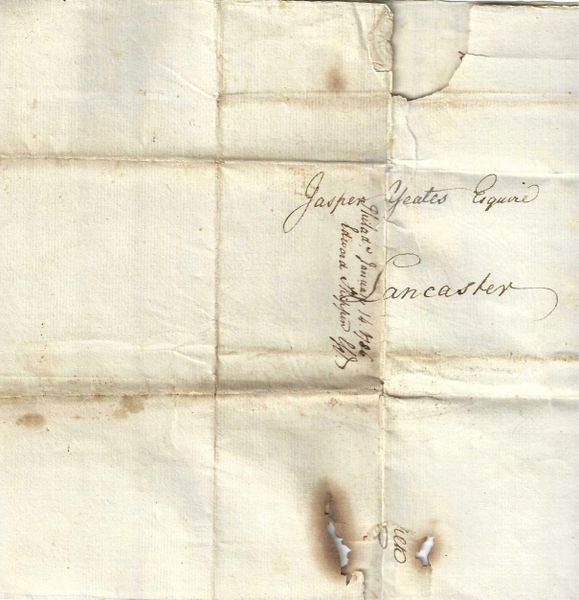 Jasper Yeates Esquire
Lancaster
Philada. January 14 1786
Edward Shippen Esqr